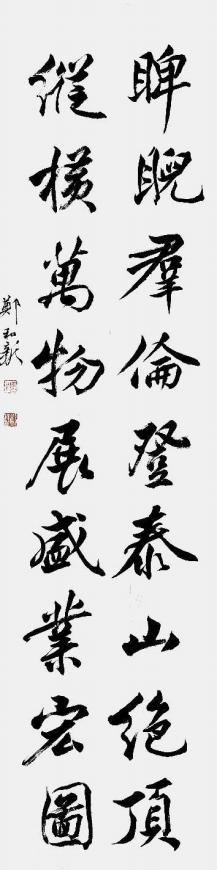 睥睨羣倫登泰山絶頂
縱橫萬物展盛業宏圖
鄭和新